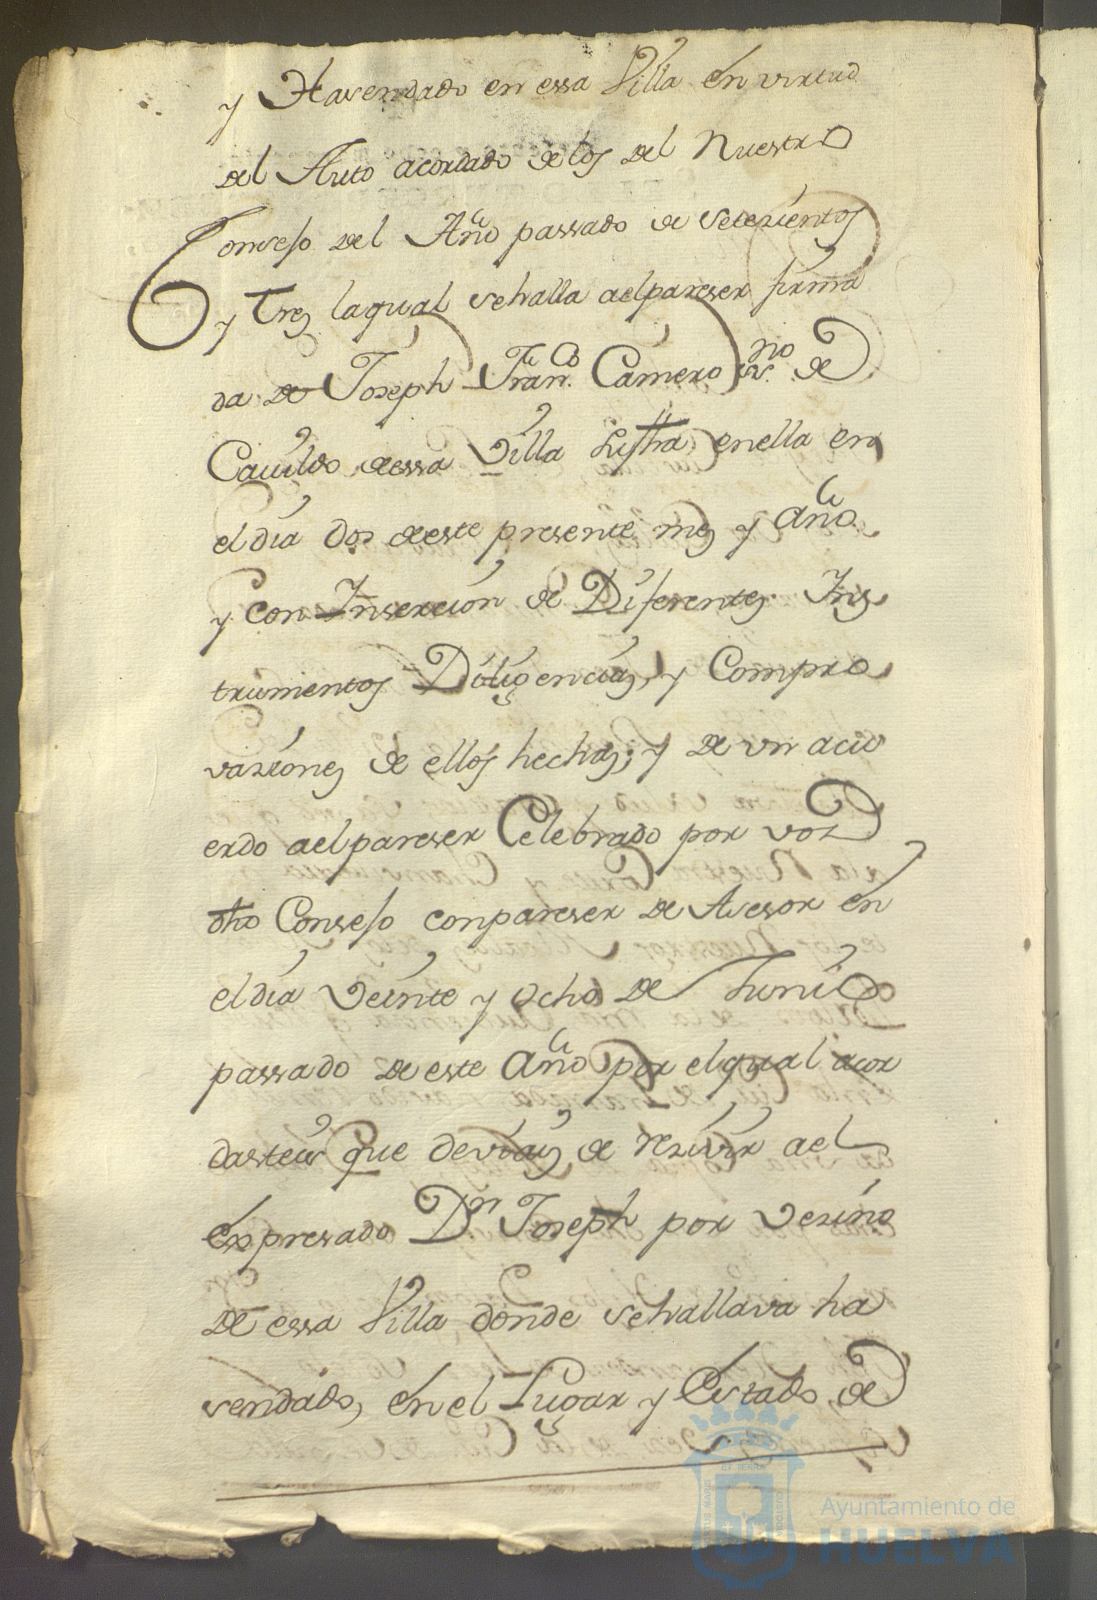 y Hasendado en essa Villa en virtud
del Auto acordado de los del Nuestro
Conseso del Año passado de setezientos
y tres la qual sehalla aelpareser firma
da de Joseph Fran.co Camero ss.rio de
Cavildo dessa Villa su fha enella en
el dia dos deeste presente mes y año
y con Insercion de Diferentes Ins
trumentos Diligencias, y Compro
vaziones de ellos hechas; y de un acu
erdo aelpareser Celebrado por vos
dho Conseso conpareser de Asesor en
el dia Veinte y ocho de Junio
passado de este año por elqual acor
dasteis que deviais de rezivir ael
expresado Dn Joseph por vezino
de essa Villa donde sehallava ha
sendado, en el Lugar y Estado de
Ayuntamiento de
HUELVA